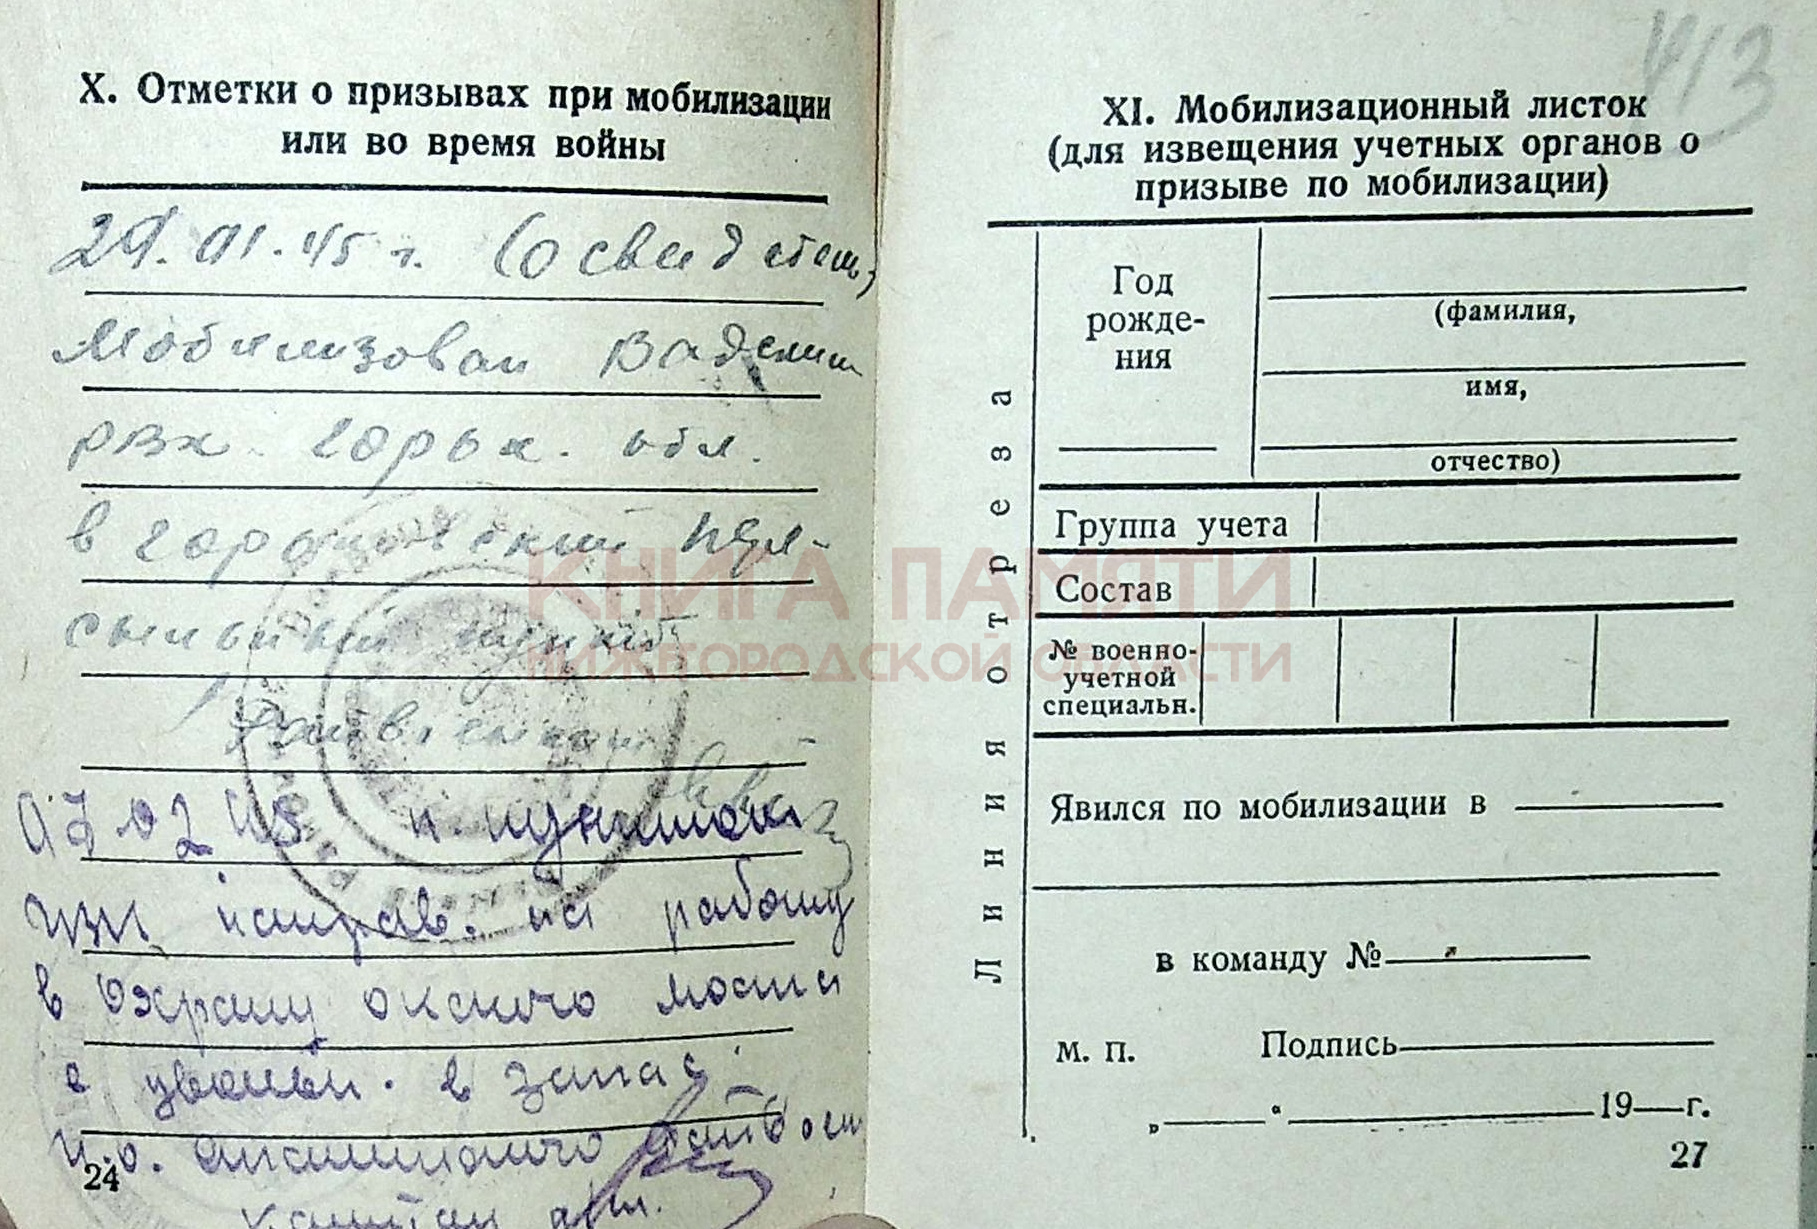 X. Отметки о призывах при мобилизации
или во время войны
29.01.45 г. (освидетел.)
Мобилизован
рвк. горьк. обл.
в горьковский пере-
сыльный пункт
02 45
направ. на работу
в охрану окского моста
с увольн. в запас.
24
413
XI. Мобилизационный листок
(для извещения учетных органов о
призыве по мобилизации)
Линия отреза
Год
рожде-
ния
(фамилия,
имя,
отчество)
Группа учета
Состав
№ военно-
учетной
специальн.
Явился по мобилизации в
в команду №
м. п. Подпись
„ “ 19 г.
27
КНИГА ПАМЯТИ
НИЖЕГОРОДСКОЙ ОБЛАСТИ